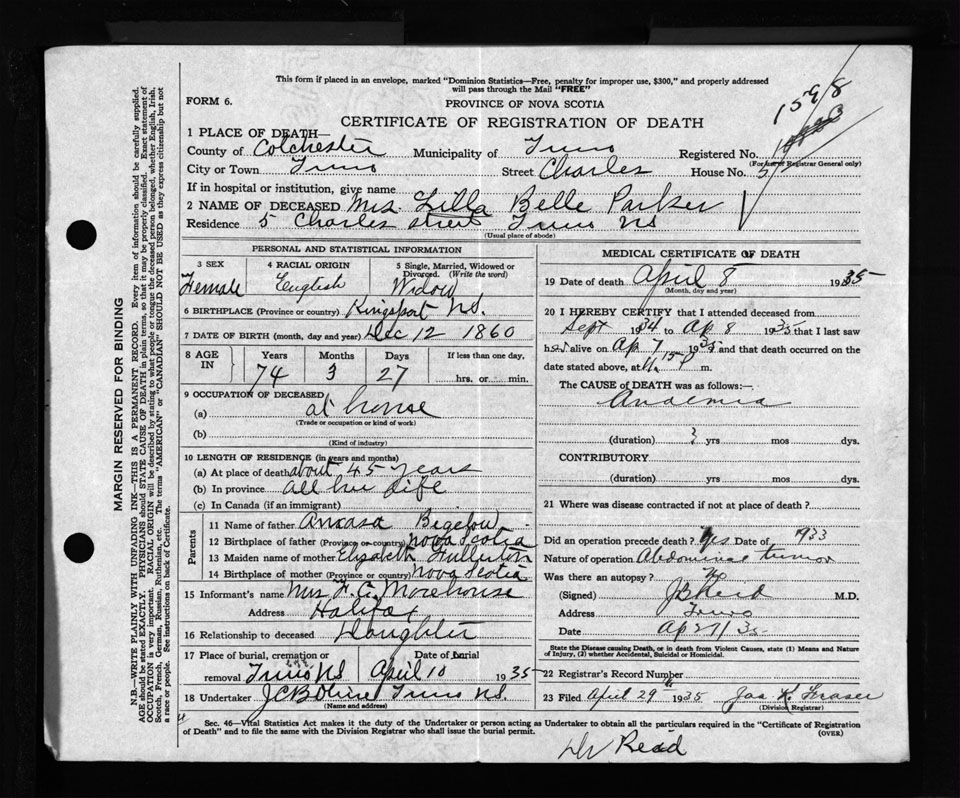 This form if placed in an envelope, marked "Dominion Statistics—Free, penalty for improper use, $300," and properly addressed
will pass through the Mail "FREE"
1598
FORM 6.
PROVINCE OF NOVA SCOTIA
CERTIFICATE OF REGISTRATION OF DEATH
1 PLACE OF DEATH—
County of Colchester Municipality of Truro Registered No.
(For use of Registrar General only)
City or Town Truro Street Charles House No. 5
If in hospital or institution, give name
2 NAME OF DECEASED Mrs. Lilla Belle Parker
Residence 5 Charles Street Truro NS
(Usual place of abode)
PERSONAL AND STATISTICAL INFORMATION
3 SEX 4 RACIAL ORIGIN 5 Single, Married, Widowed or Divorced. (Write the word)
Female English Widow
6 BIRTHPLACE (Province or country) Kingsport N.S.
7 DATE OF BIRTH (month, day and year) Dec 12 1860
8 AGE IN Years Months Days If less than one day,
74 3 27 hrs. or min.
9 OCCUPATION OF DECEASED
(a) at home
(Trade or occupation or kind of work)
(b)
(Kind of industry)
10 LENGTH OF RESIDENCE (in years and months)
(a) At place of death about 45 years
(b) In province all her life
(c) In Canada (if an immigrant)
Parents
11 Name of father Amasa Bigelow
12 Birthplace of father (Province or country) Nova Scotia
13 Maiden name of mother Elizabeth Fullerton
14 Birthplace of mother (Province or country) Nova Scotia
15 Informant's name Mrs F. C. Morehouse
Address Halifax
16 Relationship to deceased Daughter
17 Place of burial, cremation or removal Date of burial
Truro NS April 10 1935
18 Undertaker Truro NS
(Name and address)
MEDICAL CERTIFICATE OF DEATH
19 Date of death April 8 1935
(Month, day and year)
20 I HEREBY CERTIFY that I attended deceased from
Sept 1934 to Ap 8 1935 that I last saw
her alive on Ap 7 1935 and that death occurred on the
date stated above, at 11.15 P m.
The CAUSE OF DEATH was as follows:—
Anaemia
(duration) ? yrs mos dys.
CONTRIBUTORY
(duration) yrs mos dys.
21 Where was disease contracted if not at place of death?
Did an operation precede death? Yes Date of 1933
Nature of operation Abdominal tumor
Was there an autopsy? No
(Signed) J B Reid M.D.
Address Truro
Date Ap 27/35
State the Disease causing Death, or in death from Violent Causes, state (1) Means and Nature
of Injury, (2) whether Accidental, Suicidal or Homicidal.
22 Registrar's Record Number
23 Filed April 29 1935 Jas K. Fraser
(Division Registrar)
Sec. 46—Vital Statistics Act makes it the duty of the Undertaker or person acting as Undertaker to obtain all the particulars required in the "Certificate of Registration
of Death" and to file the same with the Division Registrar who shall issue the burial permit.
(OVER)
Dr Read
MARGIN RESERVED FOR BINDING
N.B.—WRITE PLAINLY WITH UNFADING INK—THIS IS A PERMANENT RECORD. Every item of information should be carefully supplied.
AGE should be stated EXACTLY. PHYSICIANS should STATE CAUSE OF DEATH in plain terms, so that it may be properly classified. Exact statement of
OCCUPATION is very important. RACIAL ORIGIN will be described by stating to what people or tongue the deceased person belonged, whether English, Irish,
Scotch, French, German, Russian, Ruthenian, etc. The terms "AMERICAN" or "CANADIAN" SHOULD NOT BE USED as they express citizenship but not
a race or people. See instructions on back of Certificate.